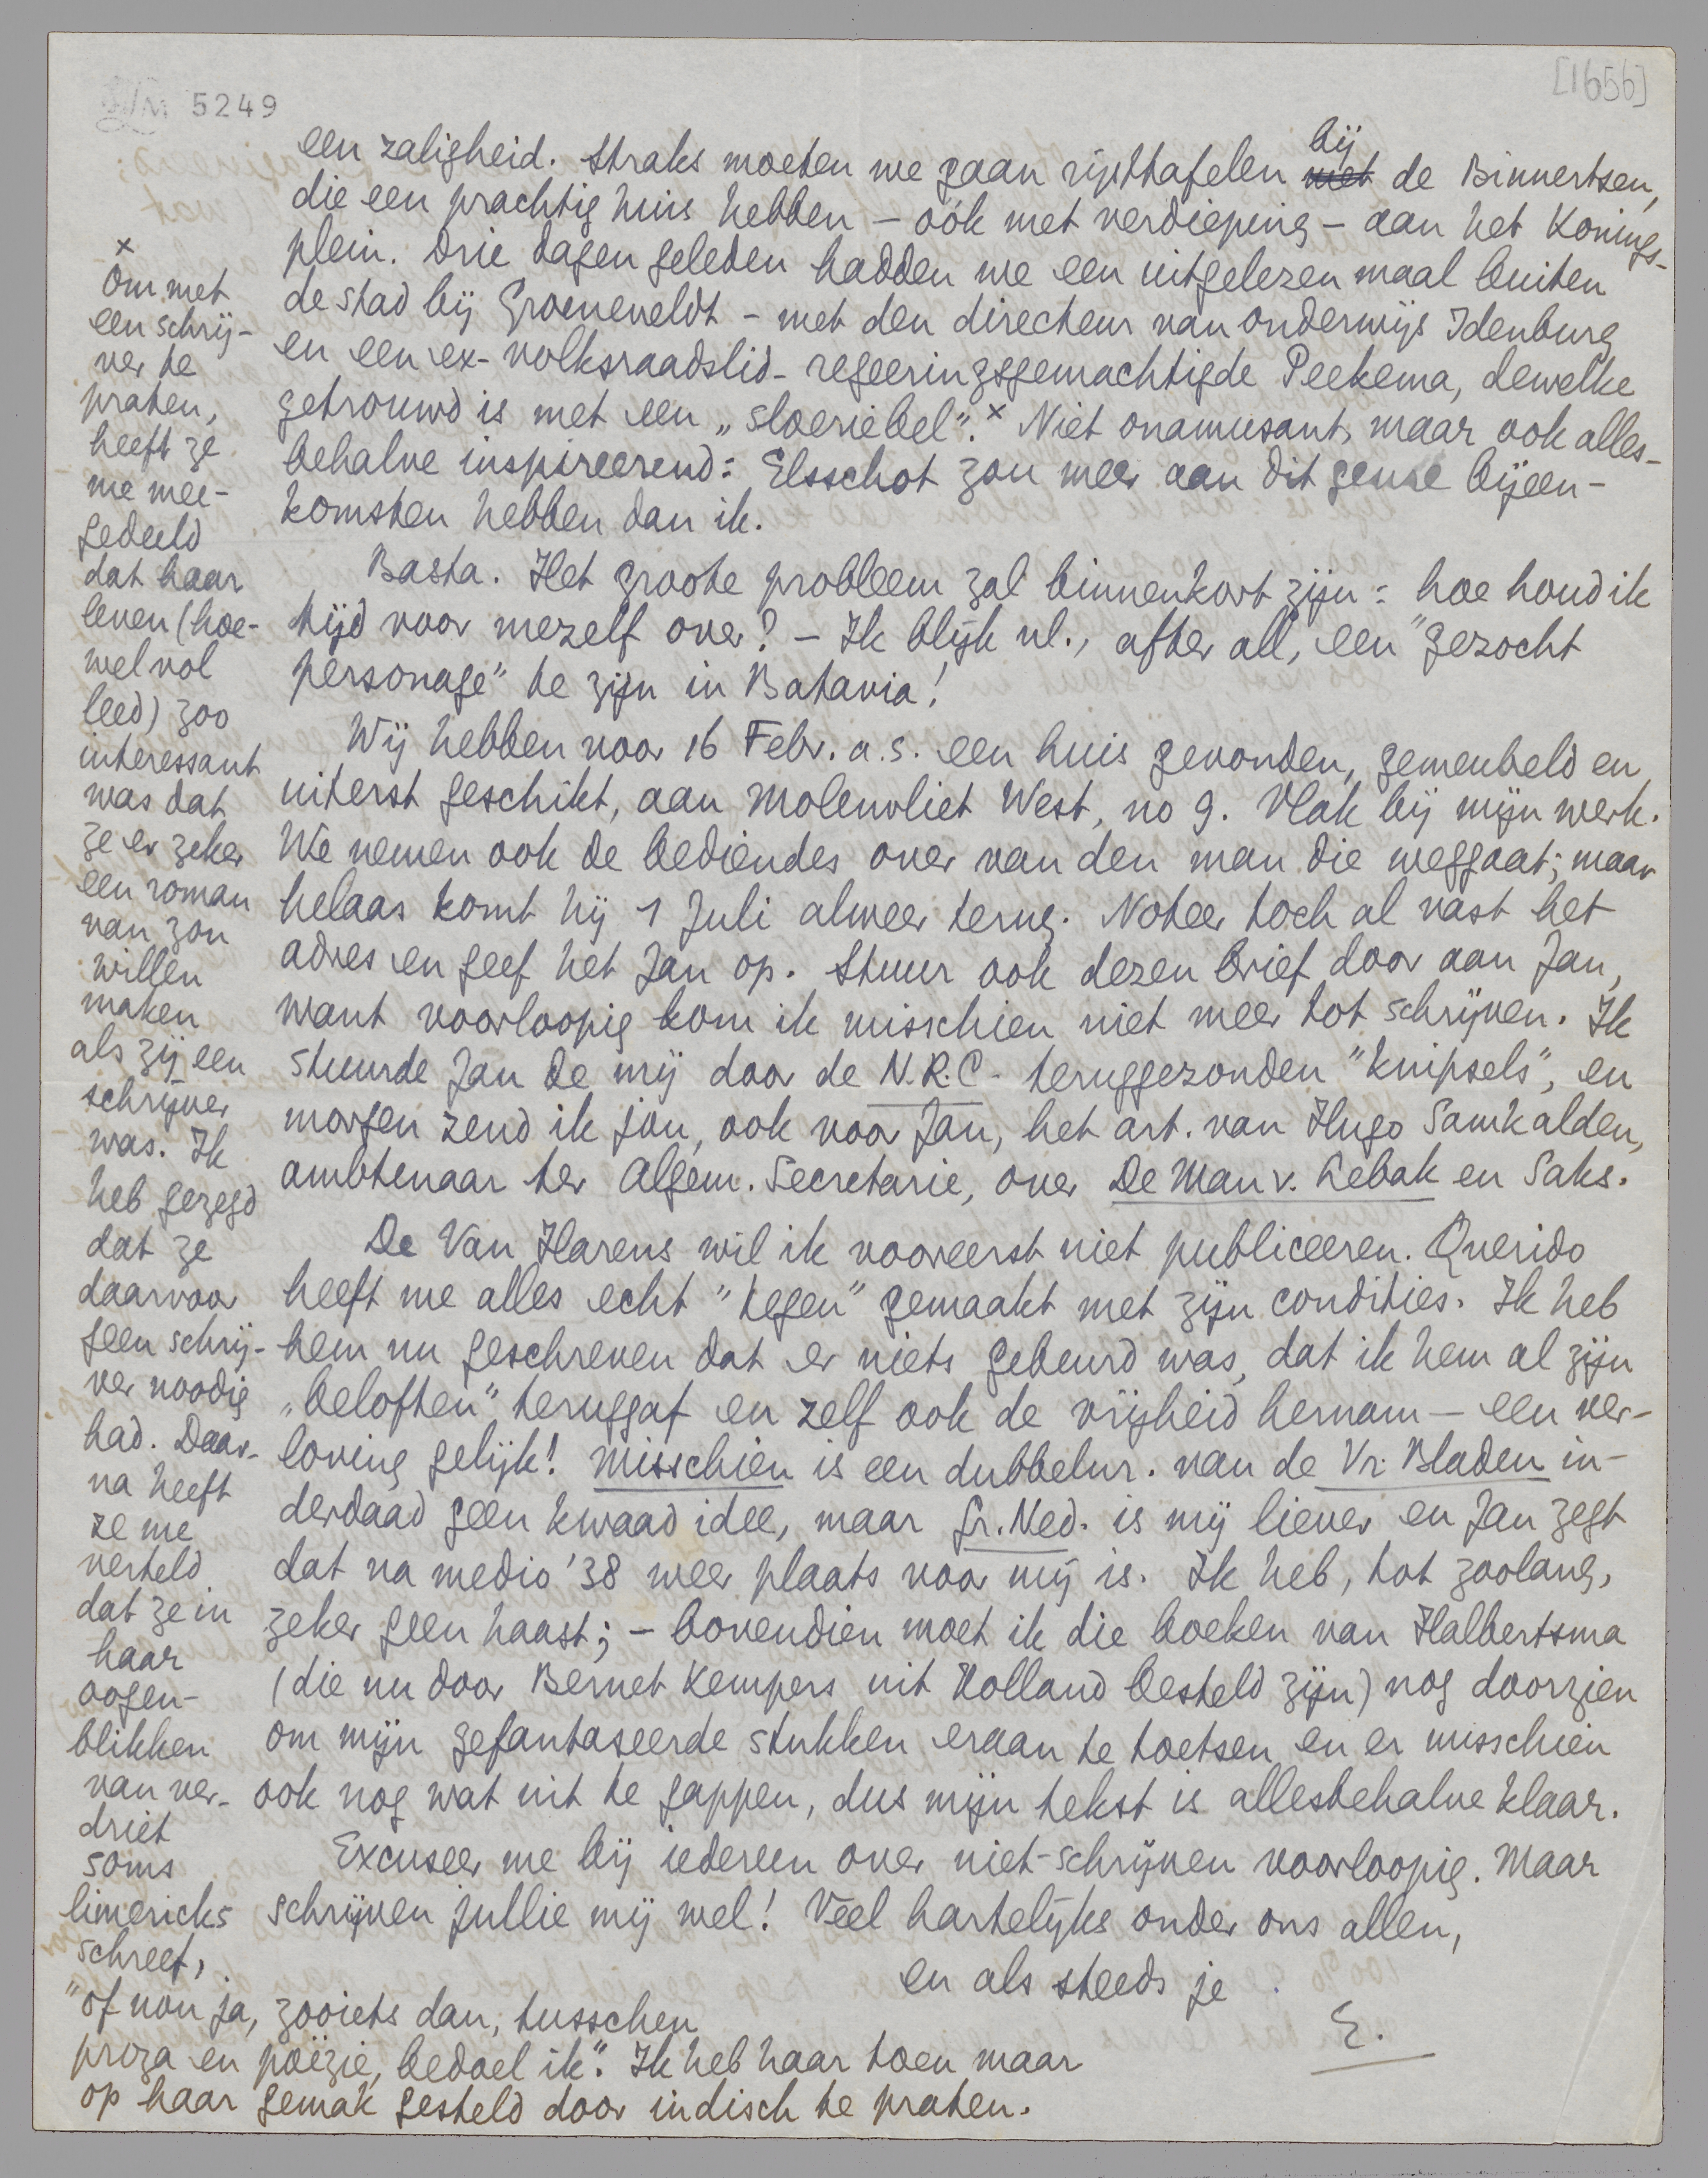 LM 5249
[1656]
een zaligheid. Straks moeten we gaan rijsttafelen bij met de Binnertsen,
die een prachtig huis hebben – oók met verdieping – aan het Konings-
plein. Drie dagen geleden hadden we een uitgelezen maal buiten
de stad bij Groeneveldt – met den directeur van onderwijs Idenburg
en een ex-volksraadslid-regeeringsgemachtigde Peekema, dewelke
getrouwd is met een „sloeriebel".× Niet onamusant, maar ook alles-
behalve inspireerend: Elsschot zou meer aan dit genre bijeen-
komsten hebben dan ik.
Basta. Het groote probleem zal binnenkort zijn: hoe houd ik
tijd voor mezelf over? – Ik blijk nl., after all, een "gezocht
personage" te zijn in Batavia!
Wij hebben voor 16 Febr. a.s. een huis gevonden, gemeubeld en
uiterst geschikt, aan Molenvliet West, no 9. Vlak bij mijn werk.
We nemen ook de bediendes over van den man die weggaat; maar
helaas komt hij 1 Juli alweer terug. Noteer toch al vast het
adres en geef het Jan op. Stuur ook dezen brief door aan Jan,
want voorloopig kom ik misschien niet meer tot schrijven. Ik
stuurde Jan de mij door de N.R.C. teruggezonden "knipsels", en
morgen zend ik jou, ook voor Jan, het art. van Hugo Samkalden,
ambtenaar ter Algem. Secretarie, over De Man v. Lebak en Saks.
De Van Harens wil ik vooreerst niet publiceeren. Querido
heeft me alles echt "tegen" gemaakt met zijn condities. Ik heb
hem nu geschreven dat er niets gebeurd was, dat ik hem al zijn
„beloften" teruggaf en zelf ook de vrijheid hernam – een ver-
loving gelijk! Misschien is een dubbelnr. van de Vr. Bladen in-
derdaad geen kwaad idee, maar Gr. Ned. is mij liever en Jan zegt
dat na medio '38 weer plaats voor mij is. Ik heb, tot zoolang,
zeker geen haast; – bovendien moet ik die boeken van Halbertsma
(die nu door Bernet Kempers uit Holland besteld zijn) nog doorzien
om mijn gefantaseerde stukken eraan te toetsen en er misschien
ook nog wat uit te gappen, dus mijn tekst is allesbehalve klaar.
Excuseer me bij iedereen over niet-schrijven voorloopig. Maar
schrijven jullie mij wel! Veel hartelijks onder ons allen,
en als steeds je
E.
×
Om met
een schrij-
ver te
praten,
heeft ze
me mee-
gedeeld
dat haar
leven (hoe-
wel vol
leed) zoo
interessant
was dat
ze er zeker
een roman
van zou
willen
maken
als zij een
schrijver
was. Ik
heb gezegd
dat ze
daarvoor
geen schrij-
ver noodig
had. Daar-
na heeft
ze me
verteld
dat ze in
haar
oogen-
blikken
van ver-
driet
soms
limericks
schreef,
"of nou ja, zooiets dan, tusschen
proza en poëzie, bedoel ik". Ik heb haar toen maar
op haar gemak gesteld door indisch te praten.